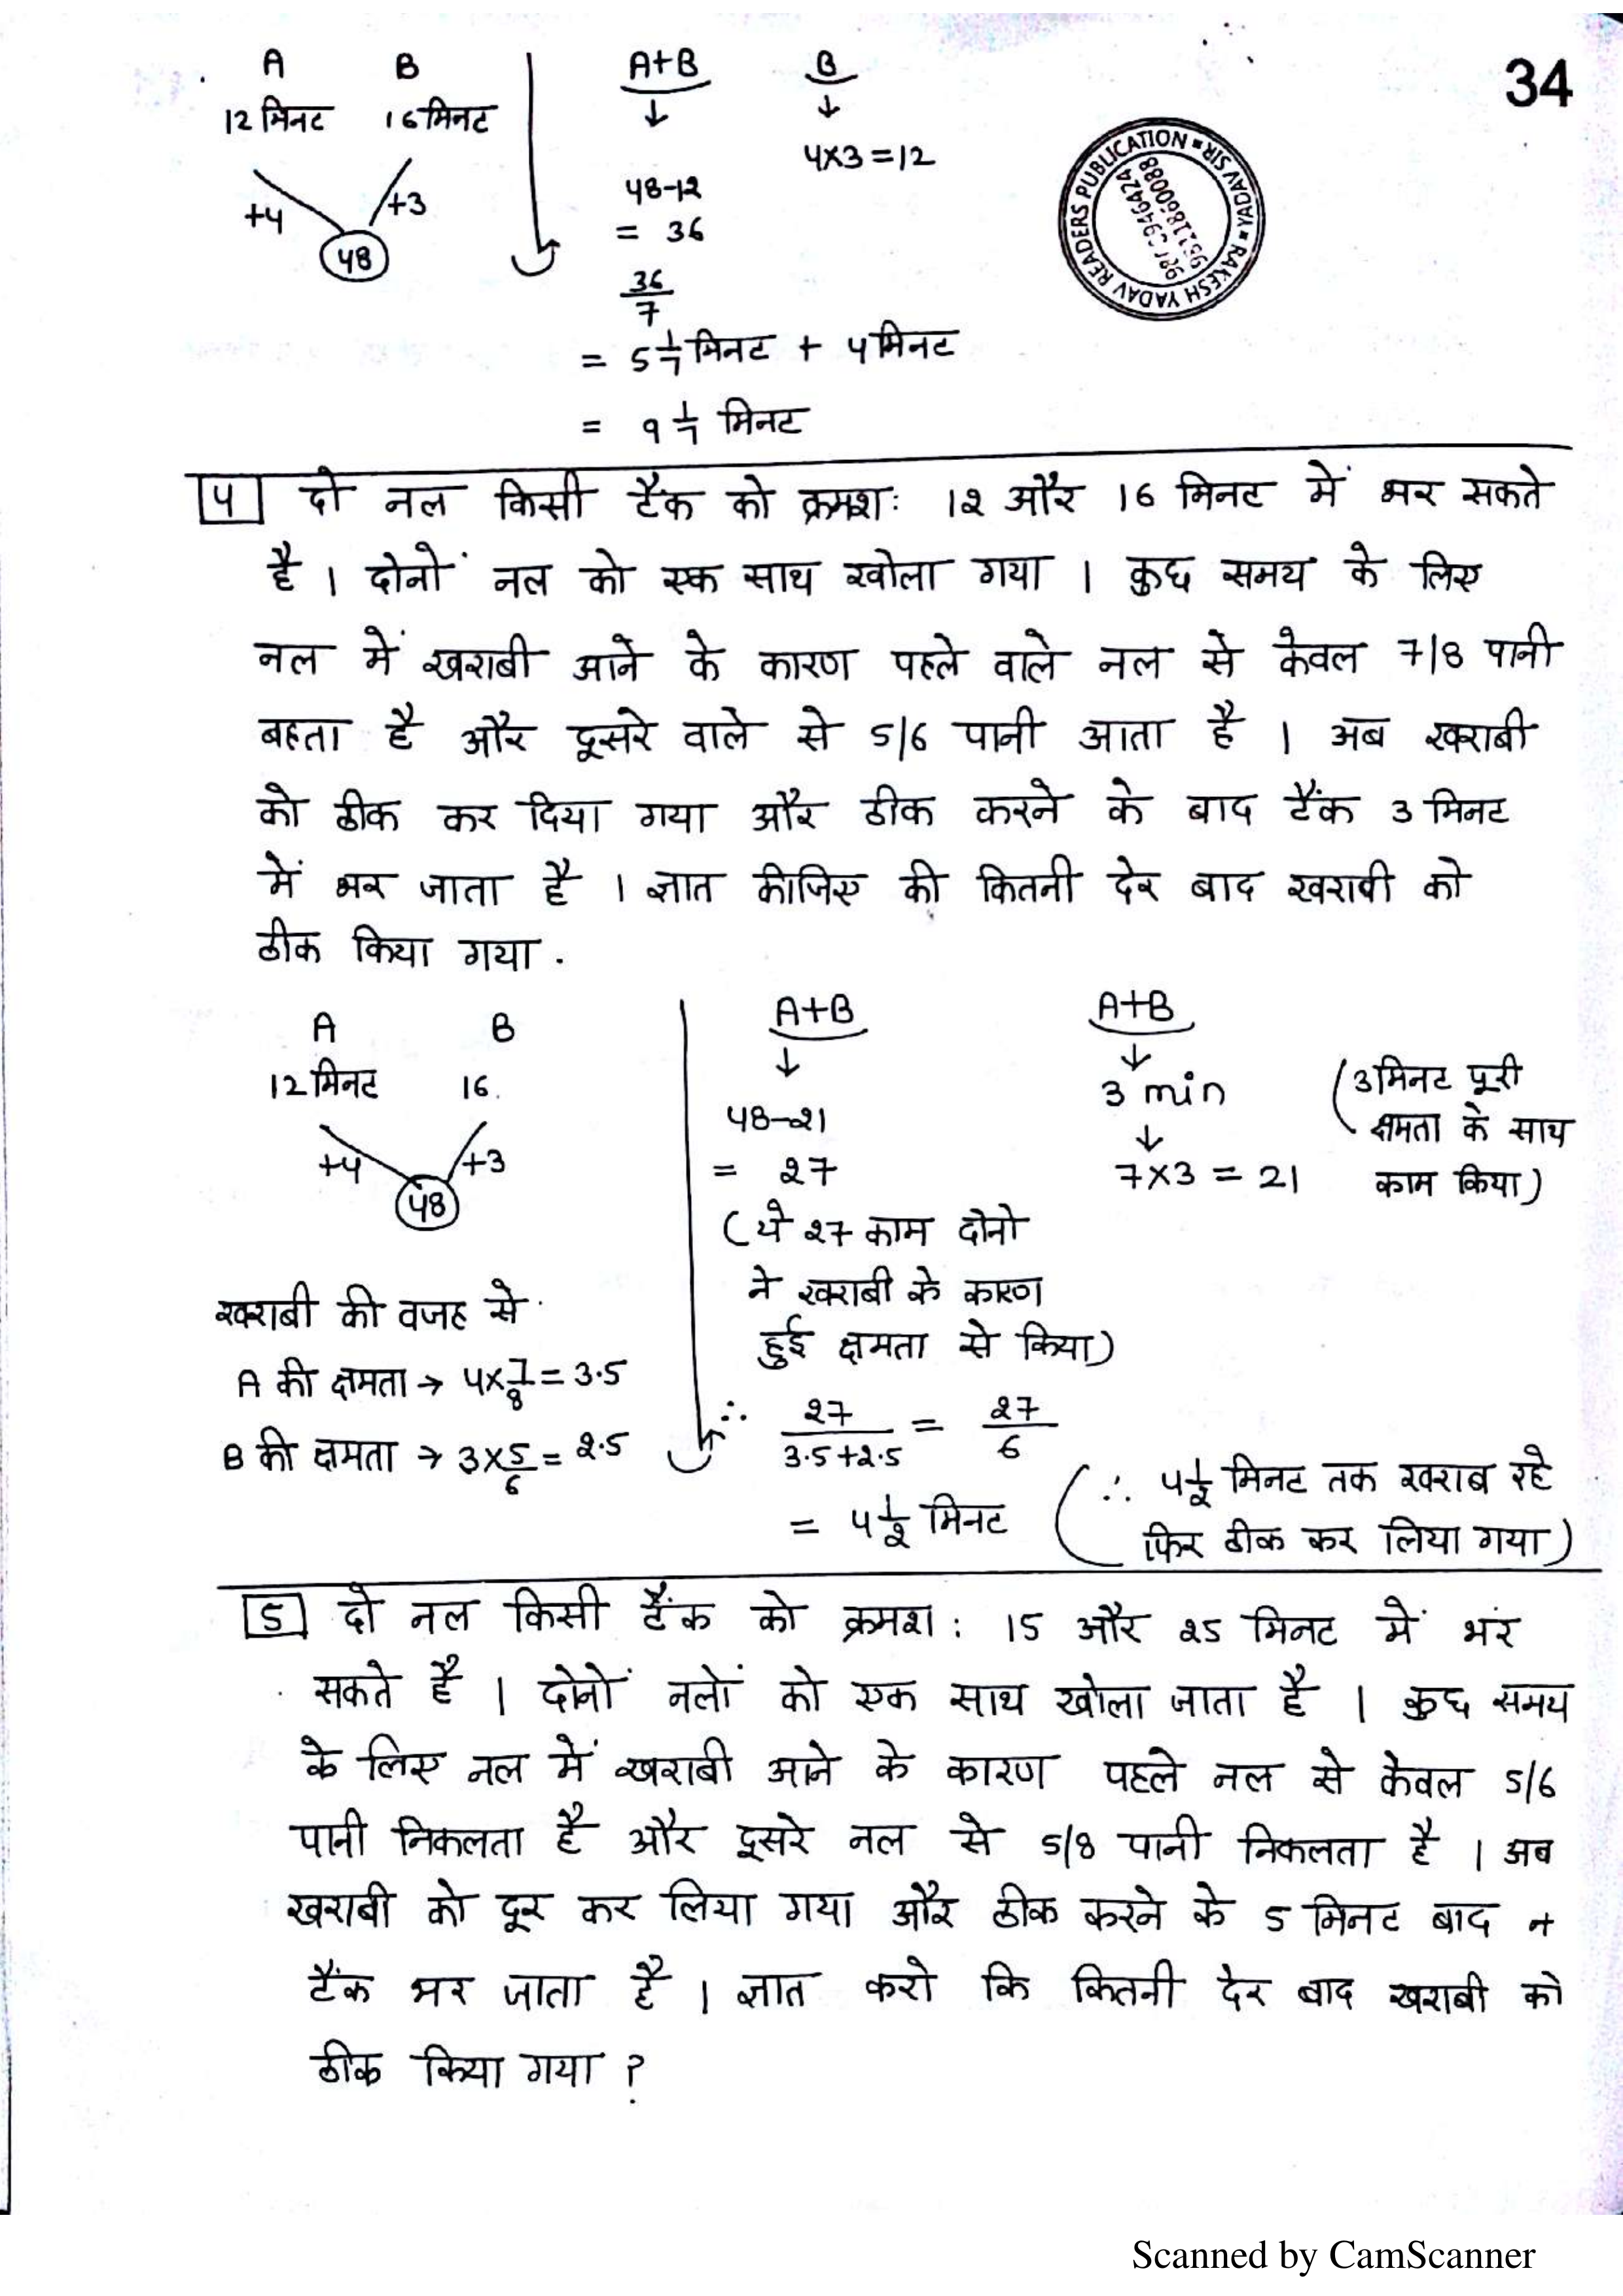 34
A B
12 मिनट 16 मिनट
+4 +3
48
A+B B
↓ ↓
4×3=12
48-12
= 36
36/7
= 5 1/7 मिनट + 4 मिनट
= 9 1/7 मिनट
RAKESH YADAV READERS PUBLICATION * RAKESH YADAV SIR *
911860088
4 दो नल किसी टैंक को क्रमशः 12 और 16 मिनट में भर सकते
है । दोनों नल को एक साथ खोला गया । कुछ समय के लिए
नल में खराबी आने के कारण पहले वाले नल से केवल 7/8 पानी
बहता है और दूसरे वाले से 5/6 पानी आता है । अब खराबी
को ठीक कर दिया गया और ठीक करने के बाद टैंक 3 मिनट
में भर जाता है । ज्ञात कीजिए की कितनी देर बाद खराबी को
ठीक किया गया .
A B
12 मिनट 16.
+4 +3
48
खराबी की वजह से
A की क्षमता → 4×7/8 = 3.5
B की क्षमता → 3×5/6 = 2.5
A+B
↓
48-21
= 27
(ये 27 काम दोनो
ने खराबी के कारण
हुई क्षमता से किया)
∴ 27/(3.5+2.5) = 27/6
= 4 1/2 मिनट
A+B
↓
3 min
↓
7×3 = 21
(3 मिनट पूरी
क्षमता के साथ
काम किया)
(∴ 4 1/2 मिनट तक खराब रहे
फिर ठीक कर लिया गया)
5 दो नल किसी टैंक को क्रमश: 15 और 25 मिनट में भर
सकते है । दोनों नलों को एक साथ खोला जाता है । कुछ समय
के लिए नल में खराबी आने के कारण पहले नल से केवल 5/6
पानी निकलता है और दूसरे नल से 5/8 पानी निकलता है । अब
खराबी को दूर कर लिया गया और ठीक करने के 5 मिनट बाद
टैंक भर जाता है । ज्ञात करो कि कितनी देर बाद खराबी को
ठीक किया गया ?
Scanned by CamScanner